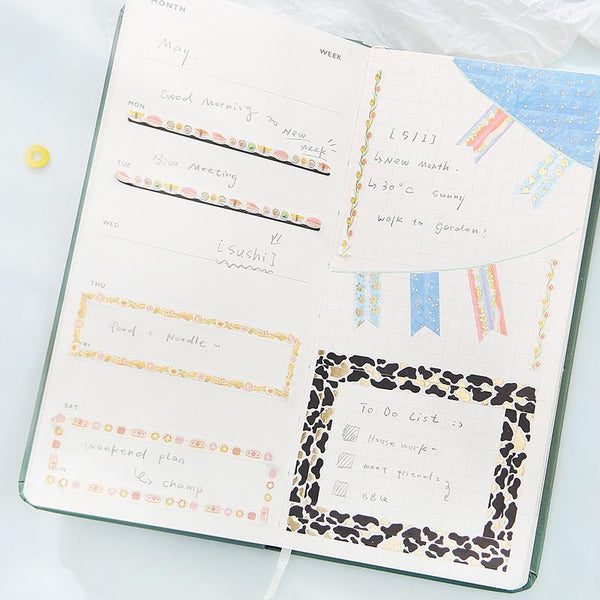 MONTH
WEEK
May.
MON
Good morning
New week
TUE
13:00 Meeting
WED
[sushi]
THU
food = Noodle ~
FRI
SAT
weekend plan
↳ champ
SUN
[5/1]
↳ New month.
↳ 30°C sunny
walk to garden!
To Do List :)
House work~
meet friends
BBQ